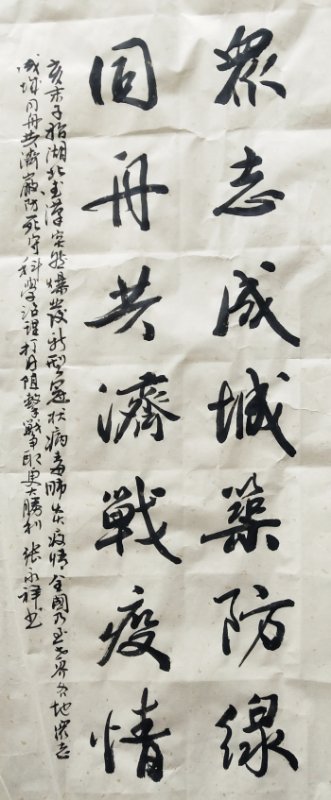 眾志成城築防線
同舟共濟戰疫情
亥末子指湖北武漢突然爆發新型冠狀病毒肺炎疫情全國乃至世界各地眾志
成城同舟共濟嚴防死守科學治理打好阻擊戰爭取更大勝利 張永祥書